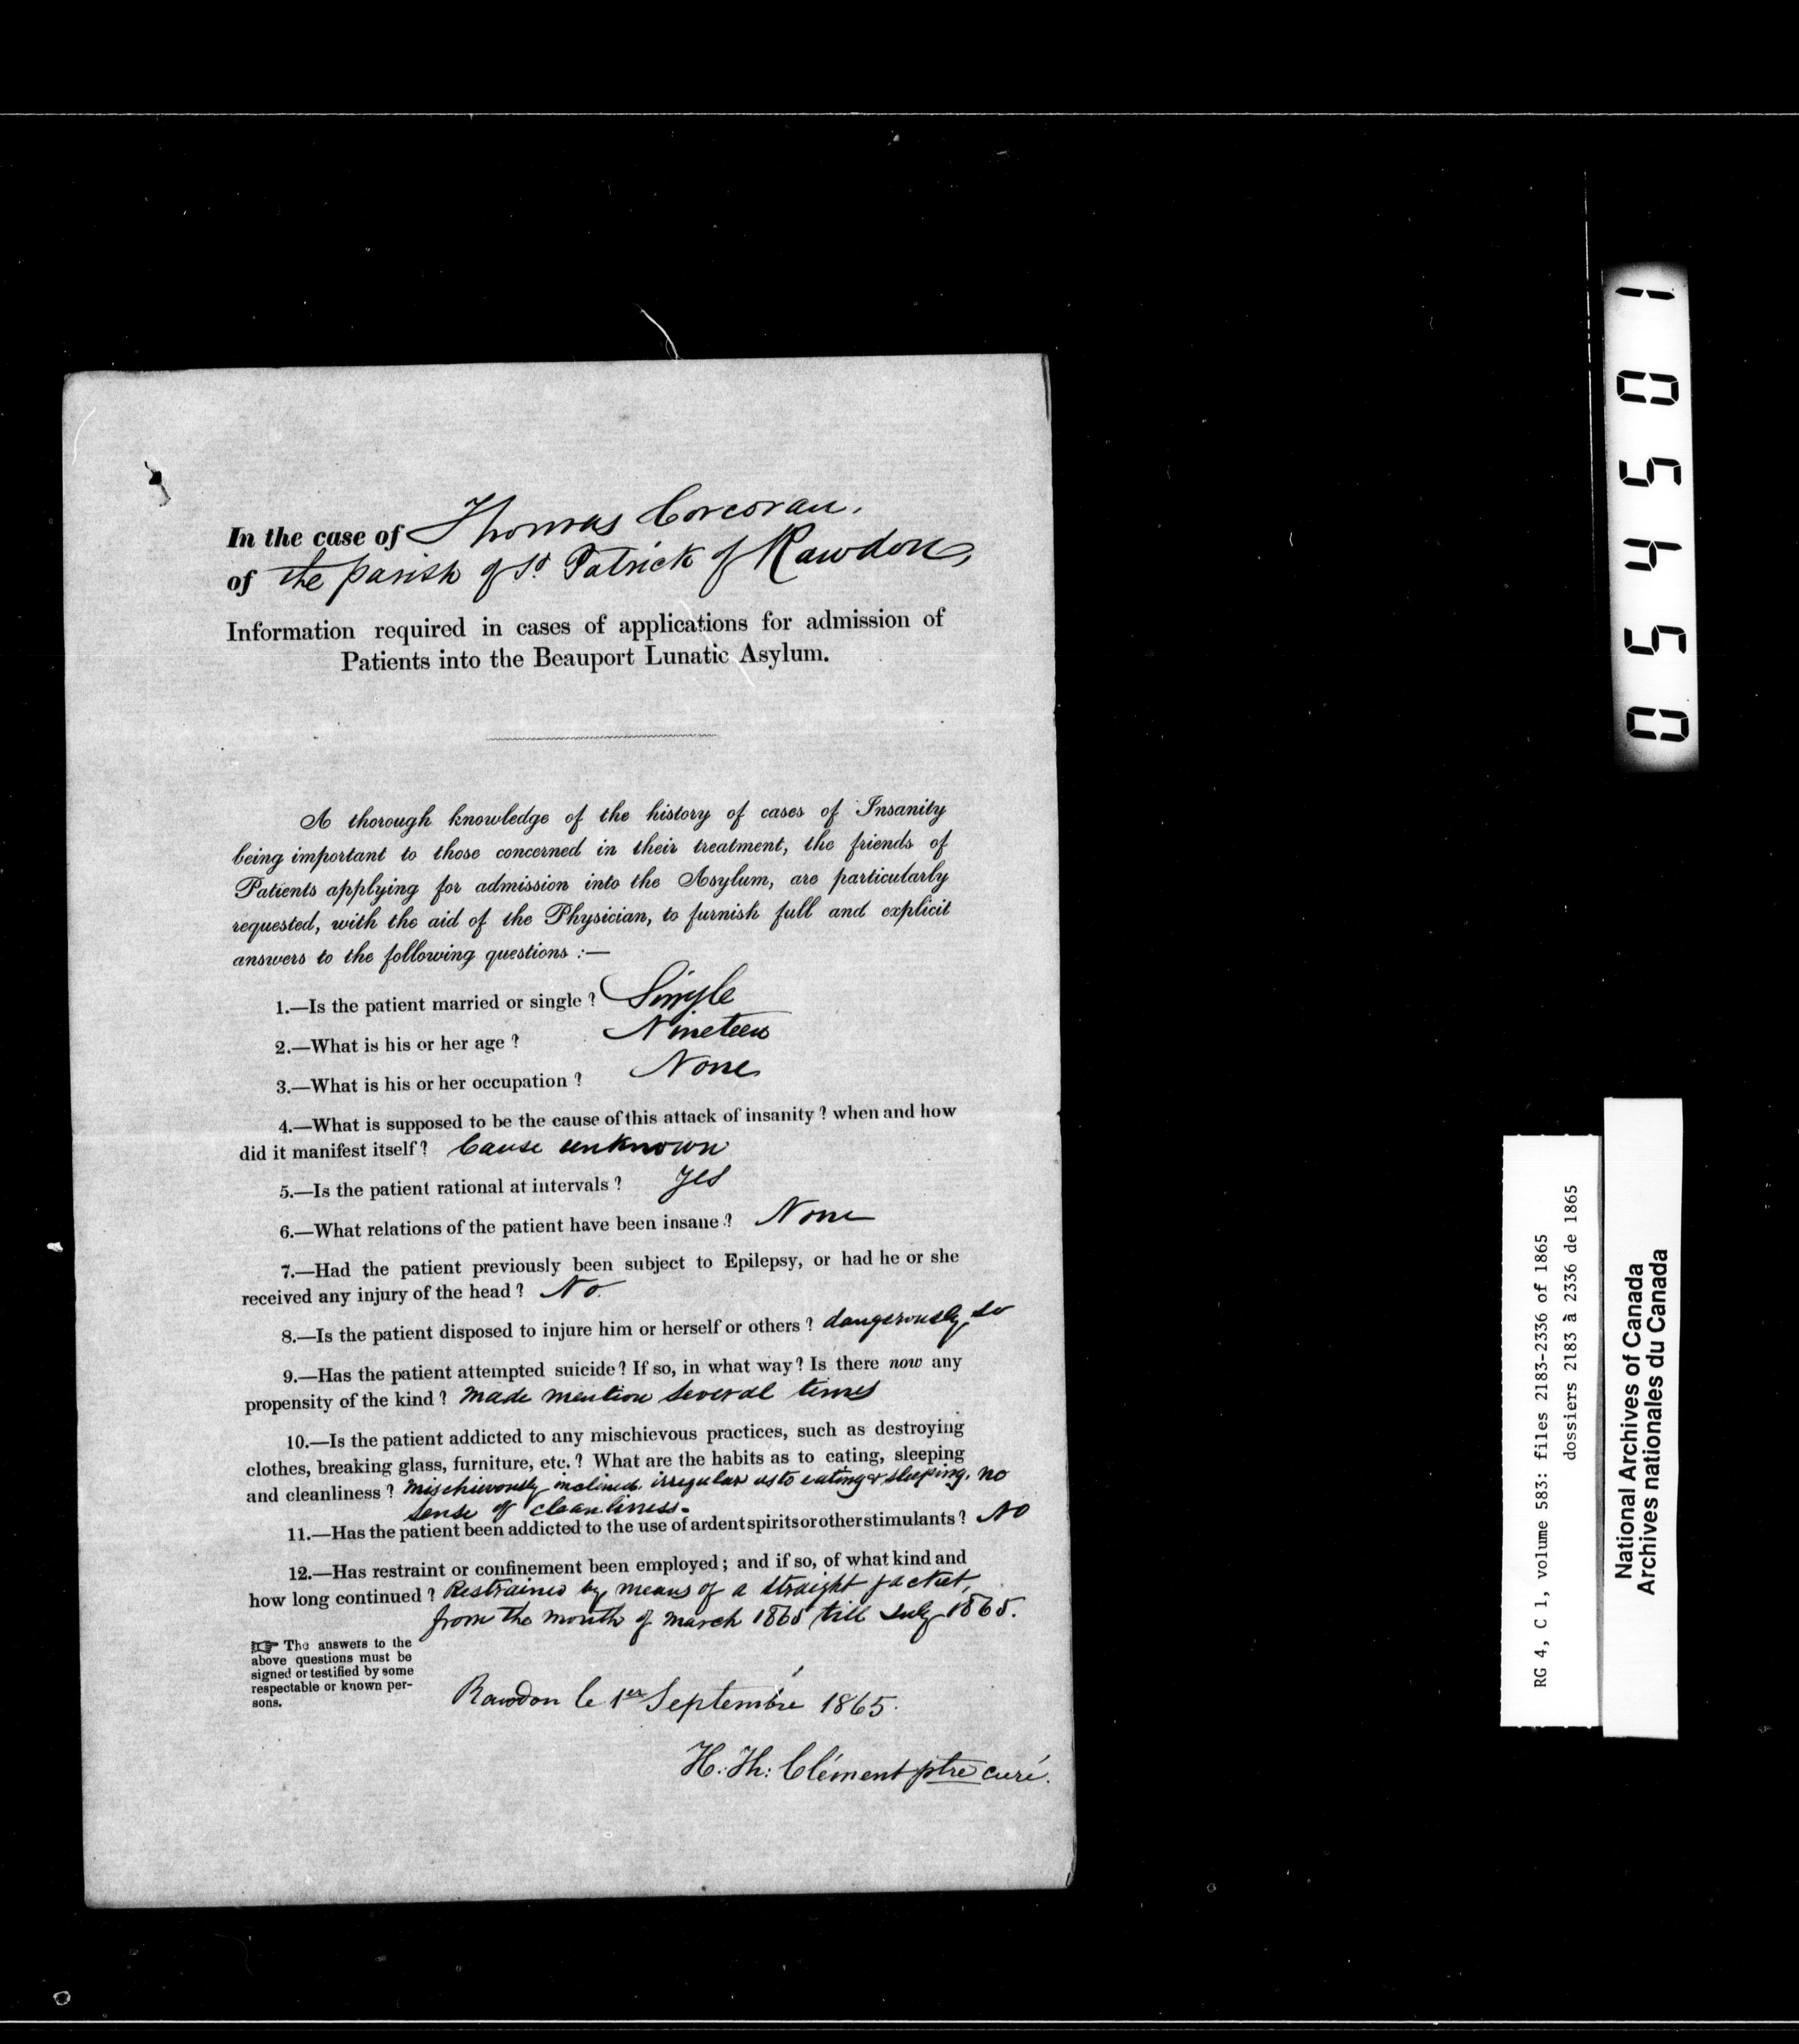 In the case of Thomas Corcoran,
of the parish of St Patrick of Rawdon,
Information required in cases of applications for admission of
Patients into the Beauport Lunatic Asylum.
A thorough knowledge of the history of cases of Insanity
being important to those concerned in their treatment, the friends of
Patients applying for admission into the Asylum, are particularly
requested, with the aid of the Physician, to furnish full and explicit
answers to the following questions :—
1.—Is the patient married or single ? Single
2.—What is his or her age ? Nineteen
3.—What is his or her occupation ? None
4.—What is supposed to be the cause of this attack of insanity ? when and how
did it manifest itself ? Cause unknown
5.—Is the patient rational at intervals ? Yes
6.—What relations of the patient have been insane ? None
7.—Had the patient previously been subject to Epilepsy, or had he or she
received any injury of the head ? No.
8.—Is the patient disposed to injure him or herself or others ? dangerously so
9.—Has the patient attempted suicide ? If so, in what way ? Is there now any
propensity of the kind ? Made mention several times
10.—Is the patient addicted to any mischievous practices, such as destroying
clothes, breaking glass, furniture, etc. ? What are the habits as to eating, sleeping
and cleanliness ? Mischievously inclined. irregular as to eating & sleeping. no
sense of cleanliness.
11.—Has the patient been addicted to the use of ardent spirits or other stimulants ? No
12.—Has restraint or confinement been employed ; and if so, of what kind and
how long continued ? Restrained by means of a straight jacket,
from the month of march 1865 till July 1865.
☞ The answers to the
above questions must be
signed or testified by some
respectable or known per-
sons.
Rawdon le 1er Septembre 1865.
H. Th: Clément ptre curé.
054501
RG 4, C 1, volume 583: files 2183-2336 of 1865
dossiers 2183 à 2336 de 1865
National Archives of Canada
Archives nationales du Canada